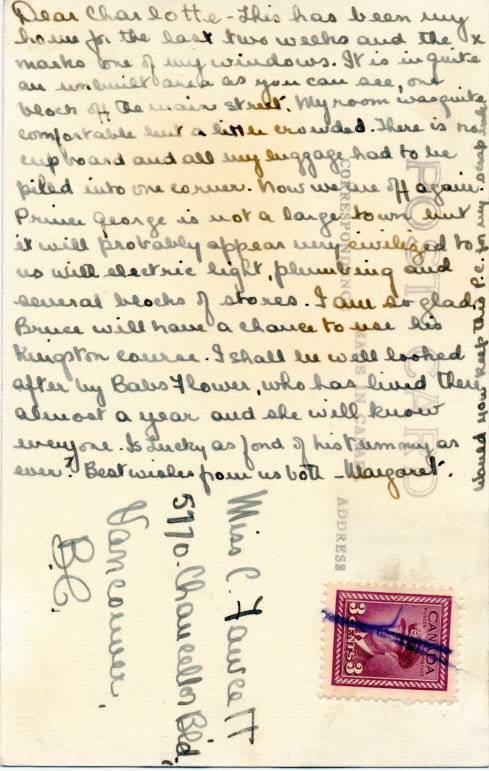 Dear Charlotte - This has been my
home for the last two weeks and the x
marks one of my windows. It is in quite
an unbuilt area as you can see, one
block off the main street. My room was quite
comfortable but a little crowded. There is no
cupboard and all my luggage had to be
piled into one corner. Now we are off again.
Prince George is not a large town but
it will probably appear very civilized to
us with electric light, plumbing and
several blocks of stores. I am so glad
Bruce will have a chance to use his
Kingston course. I shall be well looked
after by Babs Flower, who has lived there
almost a year and she will know
everyone. Is Lucky as fond of his tummy as
ever? Best wishes from us both - Margaret.
Would you keep this P.C. for my scrap
POST CARD
CORRESPONDENCE
MADE IN CANADA
ADDRESS
Miss C. Fawcett
5770 - Chancellor Bld.
Vancouver,
B.C.
CANADA
3 CENTS 3